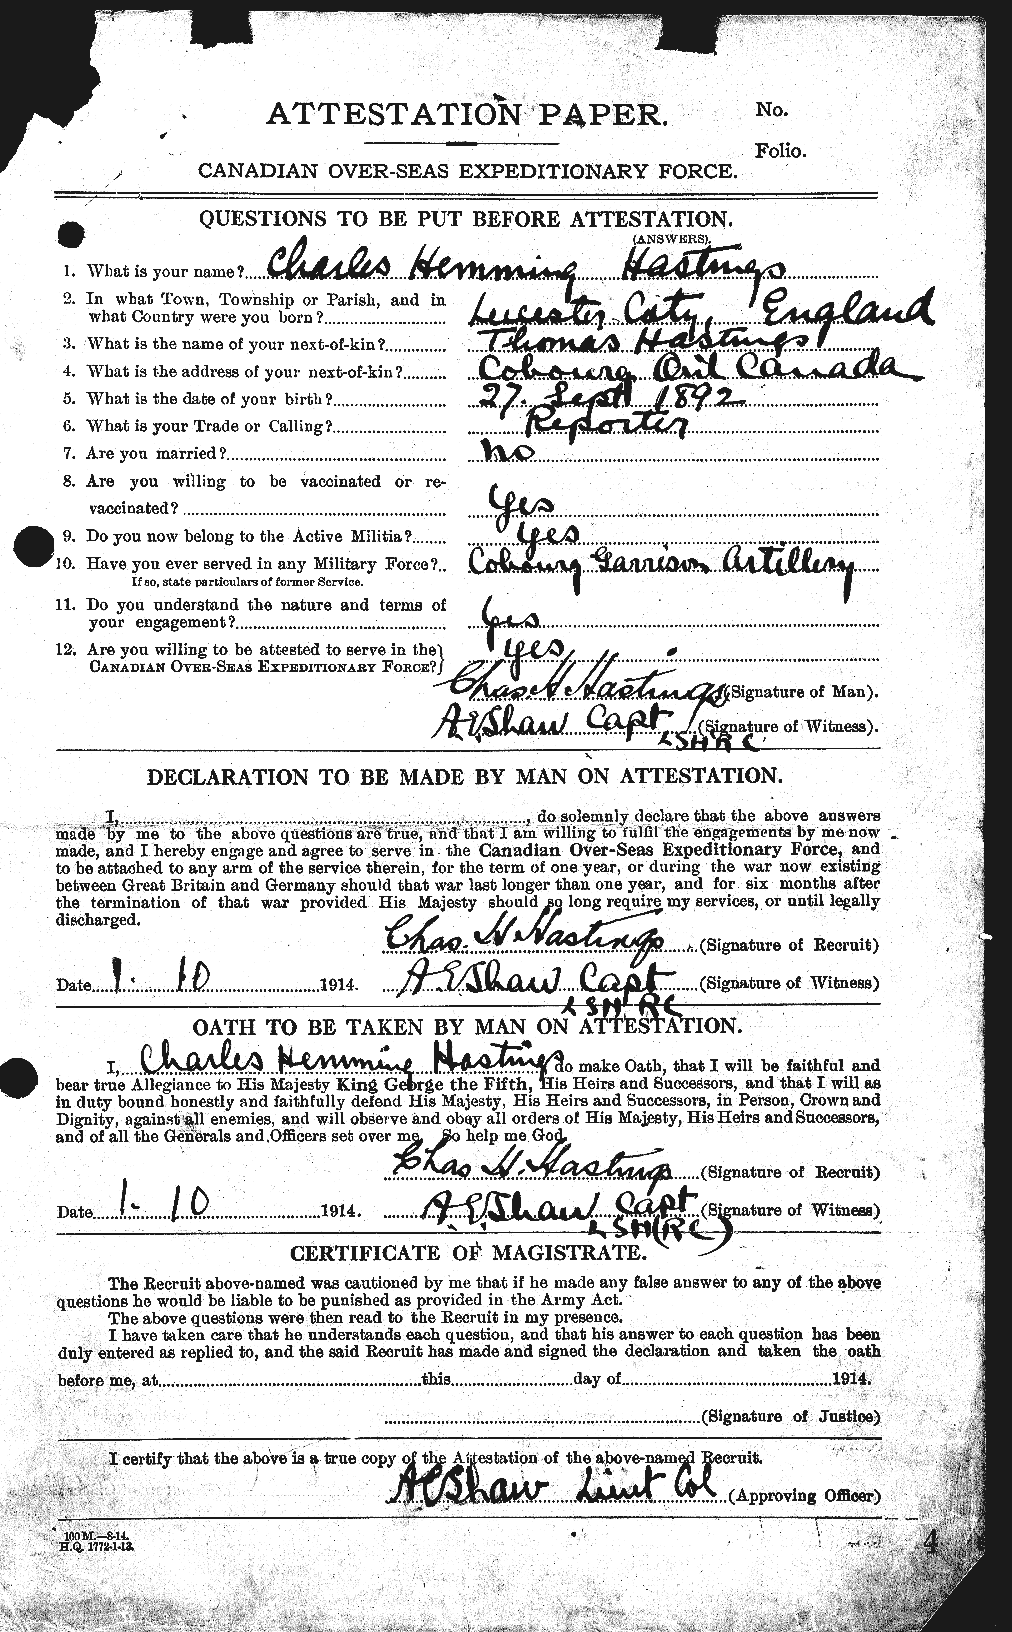 ATTESTATION PAPER.
No.
Folio.
CANADIAN OVER-SEAS EXPEDITIONARY FORCE.
QUESTIONS TO BE PUT BEFORE ATTESTATION.
(ANSWERS).
1. What is your name? Charles Hemming Hastings
2. In what Town, Township or Parish, and in
what Country were you born? Leicester City, England
3. What is the name of your next-of-kin? Thomas Hastings
4. What is the address of your next-of-kin? Cobourg Ont Canada
5. What is the date of your birth? 27. Sept 1892
6. What is your Trade or Calling? Reporter
7. Are you married? No
8. Are you willing to be vaccinated or re-
vaccinated? Yes
9. Do you now belong to the Active Militia? Yes
10. Have you ever served in any Military Force? Cobourg Garrison Artillery
If so, state particulars of former Service.
11. Do you understand the nature and terms of
your engagement? Yes
12. Are you willing to be attested to serve in the
CANADIAN OVER-SEAS EXPEDITIONARY FORCE? Yes
Chas. H. Hastings (Signature of Man).
A E Shaw Capt (Signature of Witness).
LSH RC
DECLARATION TO BE MADE BY MAN ON ATTESTATION.
I, , do solemnly declare that the above answers
made by me to the above questions are true, and that I am willing to fulfil the engagements by me now
made, and I hereby engage and agree to serve in the Canadian Over-Seas Expeditionary Force, and
to be attached to any arm of the service therein, for the term of one year, or during the war now existing
between Great Britain and Germany should that war last longer than one year, and for six months after
the termination of that war provided His Majesty should so long require my services, or until legally
discharged.
Chas. H Hastings (Signature of Recruit)
Date 1. 10 1914. A E Shaw Capt (Signature of Witness)
LSH RC
OATH TO BE TAKEN BY MAN ON ATTESTATION.
I, Charles Hemming Hastings do make Oath, that I will be faithful and
bear true Allegiance to His Majesty King George the Fifth, His Heirs and Successors, and that I will as
in duty bound honestly and faithfully defend His Majesty, His Heirs and Successors, in Person, Crown and
Dignity, against all enemies, and will observe and obey all orders of His Majesty, His Heirs and Successors,
and of all the Generals and Officers set over me. So help me God.
Chas H. Hastings (Signature of Recruit)
Date 1- 10 1914. A. E. Shaw Capt (Signature of Witness)
LSH(RC)
CERTIFICATE OF MAGISTRATE.
The Recruit above-named was cautioned by me that if he made any false answer to any of the above
questions he would be liable to be punished as provided in the Army Act.
The above questions were then read to the Recruit in my presence.
I have taken care that he understands each question, and that his answer to each question has been
duly entered as replied to, and the said Recruit has made and signed the declaration and taken the oath
before me, at this day of 1914.
(Signature of Justice)
I certify that the above is a true copy of the Attestation of the above-named Recruit.
A E Shaw Lieut Col (Approving Officer)
100 M.—8-14.
H.Q. 1772-1-13.
4